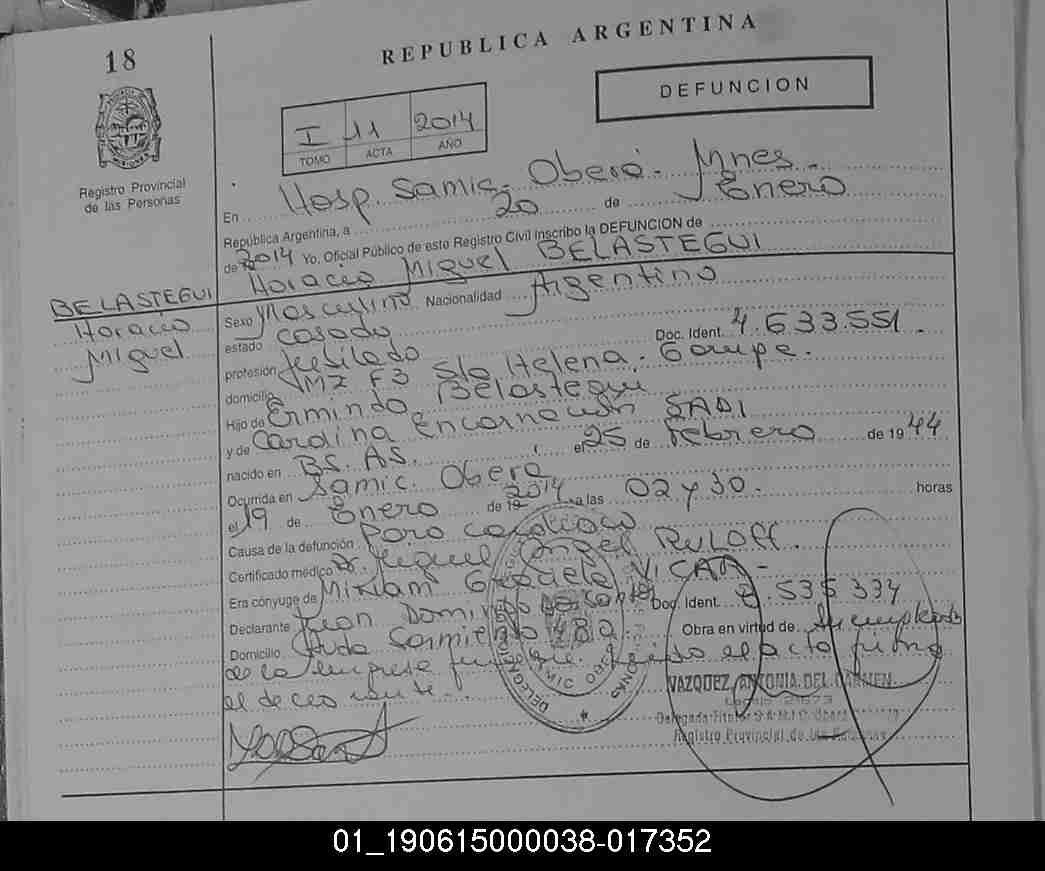 18
REPUBLICA ARGENTINA
DEFUNCION
I 11 2014
TOMO ACTA AÑO
Registro Provincial
de las Personas
En Hosp. Samic. Oberá. Mnes.
República Argentina, a 20 de Enero
de 2014 Yo, Oficial Público de este Registro Civil inscribo la DEFUNCION de
Horacio Miguel BELASTEGUI
BELASTEGUI
Horacio
Miguel
Sexo Masculino Nacionalidad Argentino
estado Casado Doc. Ident. 4.633.551.
profesión Jubilado
domicilio MZ F3 Sta Helena. Garupá.
Hijo de Ermindo Belastegui
y de Cardina Encarnación SADI
nacido en BS. AS. el 25 de Febrero de 1944
Ocurrida en Samic. Oberá
el 19 de Enero de 19 2014 a las 02 y 30. horas
Causa de la defunción Paro Cardíaco
Certificado médico Dr. Miguel Angel RULOFF.
Era cónyuge de Miriam Graciela VICAR-
Declarante Juan Domingo Dos Santos Doc. Ident. 535 334
Domicilio Avda Sarmiento 482. Obra en virtud de Su empleado
de la empresa fúnebre. el acto firma
el declarante.
VAZQUEZ, ANTONIA DEL CARMEN
Delegada Titular S.A.M.I.C. Oberá
Registro Provincial de las Personas
01_190615000038-017352